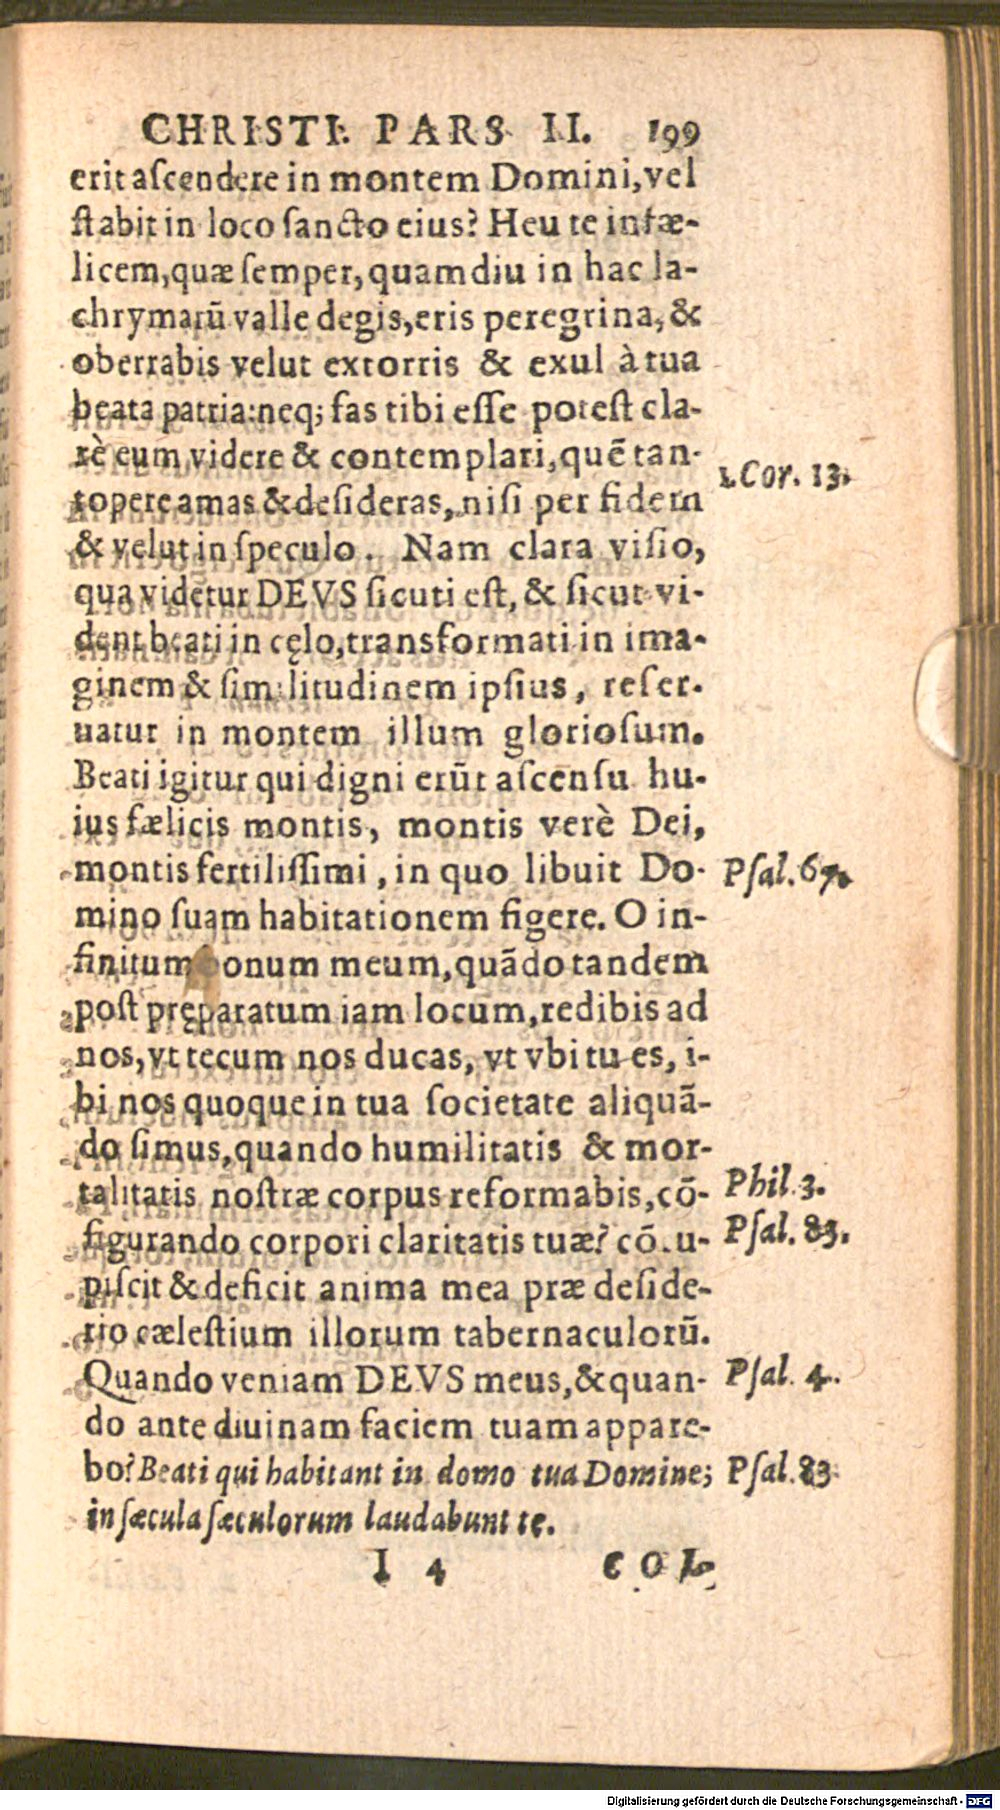 CHRISTI. PARS II. 199
erit ascendere in montem Domini, vel
stabit in loco sancto eius? Heu te infæ-
licem, quæ semper, quamdiu in hac la-
chrymarũ valle degis, eris peregrina, &
oberrabis velut extorris & exul à tua
beata patria: neq; fas tibi esse potest cla-
rè eum videre & contemplari, quẽ tan-
topere amas & desideras, nisi per fidem
1. Cor. 13.
& velut in speculo. Nam clara visio,
qua videtur DEVS sicuti est, & sicut vi-
dent beati in cęlo, transformati in ima-
ginem & similitudinem ipsius, reser-
uatur in montem illum gloriosum.
Beati igitur qui digni erũt ascensu hu-
ius fælicis montis, montis verè Dei,
montis fertilissimi, in quo libuit Do-
Psal. 67.
mino suam habitationem figere. O in-
finitum onum meum, quãdo tandem
post pręparatum iam locum, redibis ad
nos, vt tecum nos ducas, vt vbi tu es, i-
bi nos quoque in tua societate aliquã-
do simus, quando humilitatis & mor-
talitatis nostræ corpus reformabis, cõ-
Phil. 3.
figurando corpori claritatis tuæ? cõ.u-
Psal. 83.
piscit & deficit anima mea præ deside-
rio cælestium illorum tabernaculorũ.
Quando veniam DEVS meus, & quan-
Psal. 4.
do ante diuinam faciem tuam appare-
bo? Beati qui habitant in domo tua Domine;
Psal. 83.
in sæcula sæculorum laudabunt te.
I 4 COL-
Digitalisierung gefördert durch die Deutsche Forschungsgemeinschaft - DFG